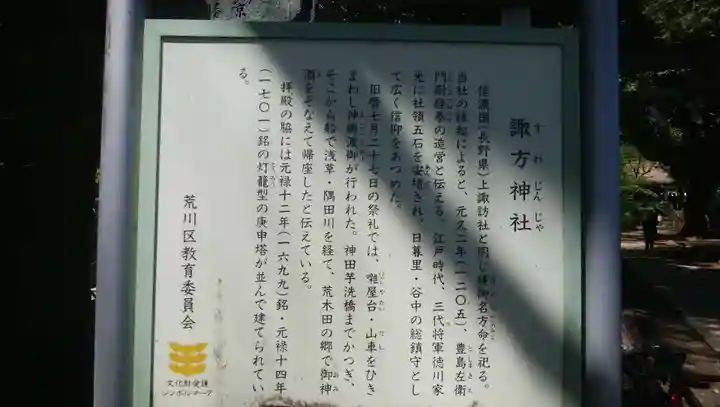 諏方神社
すわじんじゃ
信濃国(長野県)上諏訪社と同じ建御名方命を祀る。
当社の縁起によると、元久二年(一二〇五)、豊島左衛
門尉経泰の造営と伝える。江戸時代、三代将軍徳川家
光に社領五石を安堵され、日暮里・谷中の総鎮守とし
て広く信仰をあつめた。
旧暦七月二十七日の祭礼では、囃屋台・山車をひき
まわし神輿渡御が行われた。神田芋洗橋までかつぎ、
そこから船で浅草・隅田川を経て、荒木田の郷で御神
酒をそなえて帰座したと伝えている。
拝殿の脇には元禄十二年(一六九九)銘・元禄十四年
(一七〇一)銘の灯籠型の庚申塔が並んで建てられてい
る。
荒川区教育委員会
文化財愛護
シンボルマーク